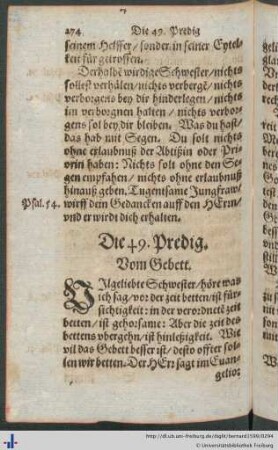 274 Die 49. Predig
seinem Helffer / sonder in seiner Eytel-
keit für getroffen.
Derhalbẽ wirdige Schwester / nichts
sollest verhälen / nichts verbergẽ / nichts
verborgens bey dir hinderlegen / nichts
im verborgnen halten / nichts verbor-
gens sol bey dir bleiben. Was du hast /
das hab mit Segen. Du solt nichts
ohne erlaubnuß der Abtißin oder Pri-
orin haben: Nichts solt ohne den Se-
gen empfahen / nichts ohne erlaubnuß
hinauß geben. Tugentsame Jungfraw /
Psal. 54. wirff dein Gedancken auff den HErrn /
vnd er wirdt dich erhalten.
Die 49. Predig.
Vom Gebett.
VIlgeliebte Schwester / höre was
ich sag / vor der zeit betten / ist für-
sichtigkeit: in der verordnetẽ zeit
betten / ist gehorsame: Aber die zeit des
bettens vbergehn / ist hinleßigkeit. Wie
vil das Gebett besser ist / desto offter sol-
len wir betten. Der HErr sagt im Euan-
gelio:
http://dl.ub.uni-freiburg.de/diglit/bernard1599/0294
© Universitätsbibliothek Freiburg